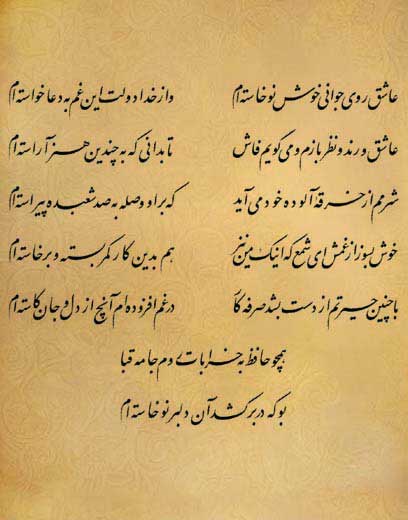 عاشق روی جوانی خوش نوخاسته‌ام وز خدا دولت این غم به دعا خواسته‌ام
عاشق و رند و نظربازم و می‌گویم فاش تا بدانی که به چندین هنر آراسته‌ام
شرمم از خرقه آلوده خود می‌آید که بر او وصله به صد شعبده پیراسته‌ام
خوش بسوز از غمش ای شمع که اینک من نیز هم بدین کار کمربسته و برخاسته‌ام
با چنین حیرتم از دست بشد صرفه کار در غم افزوده‌ام آنچ از دل و جان کاسته‌ام
همچو حافظ به خرابات روم جامه قبا
بو که در بر کشد آن دلبر نوخاسته‌ام